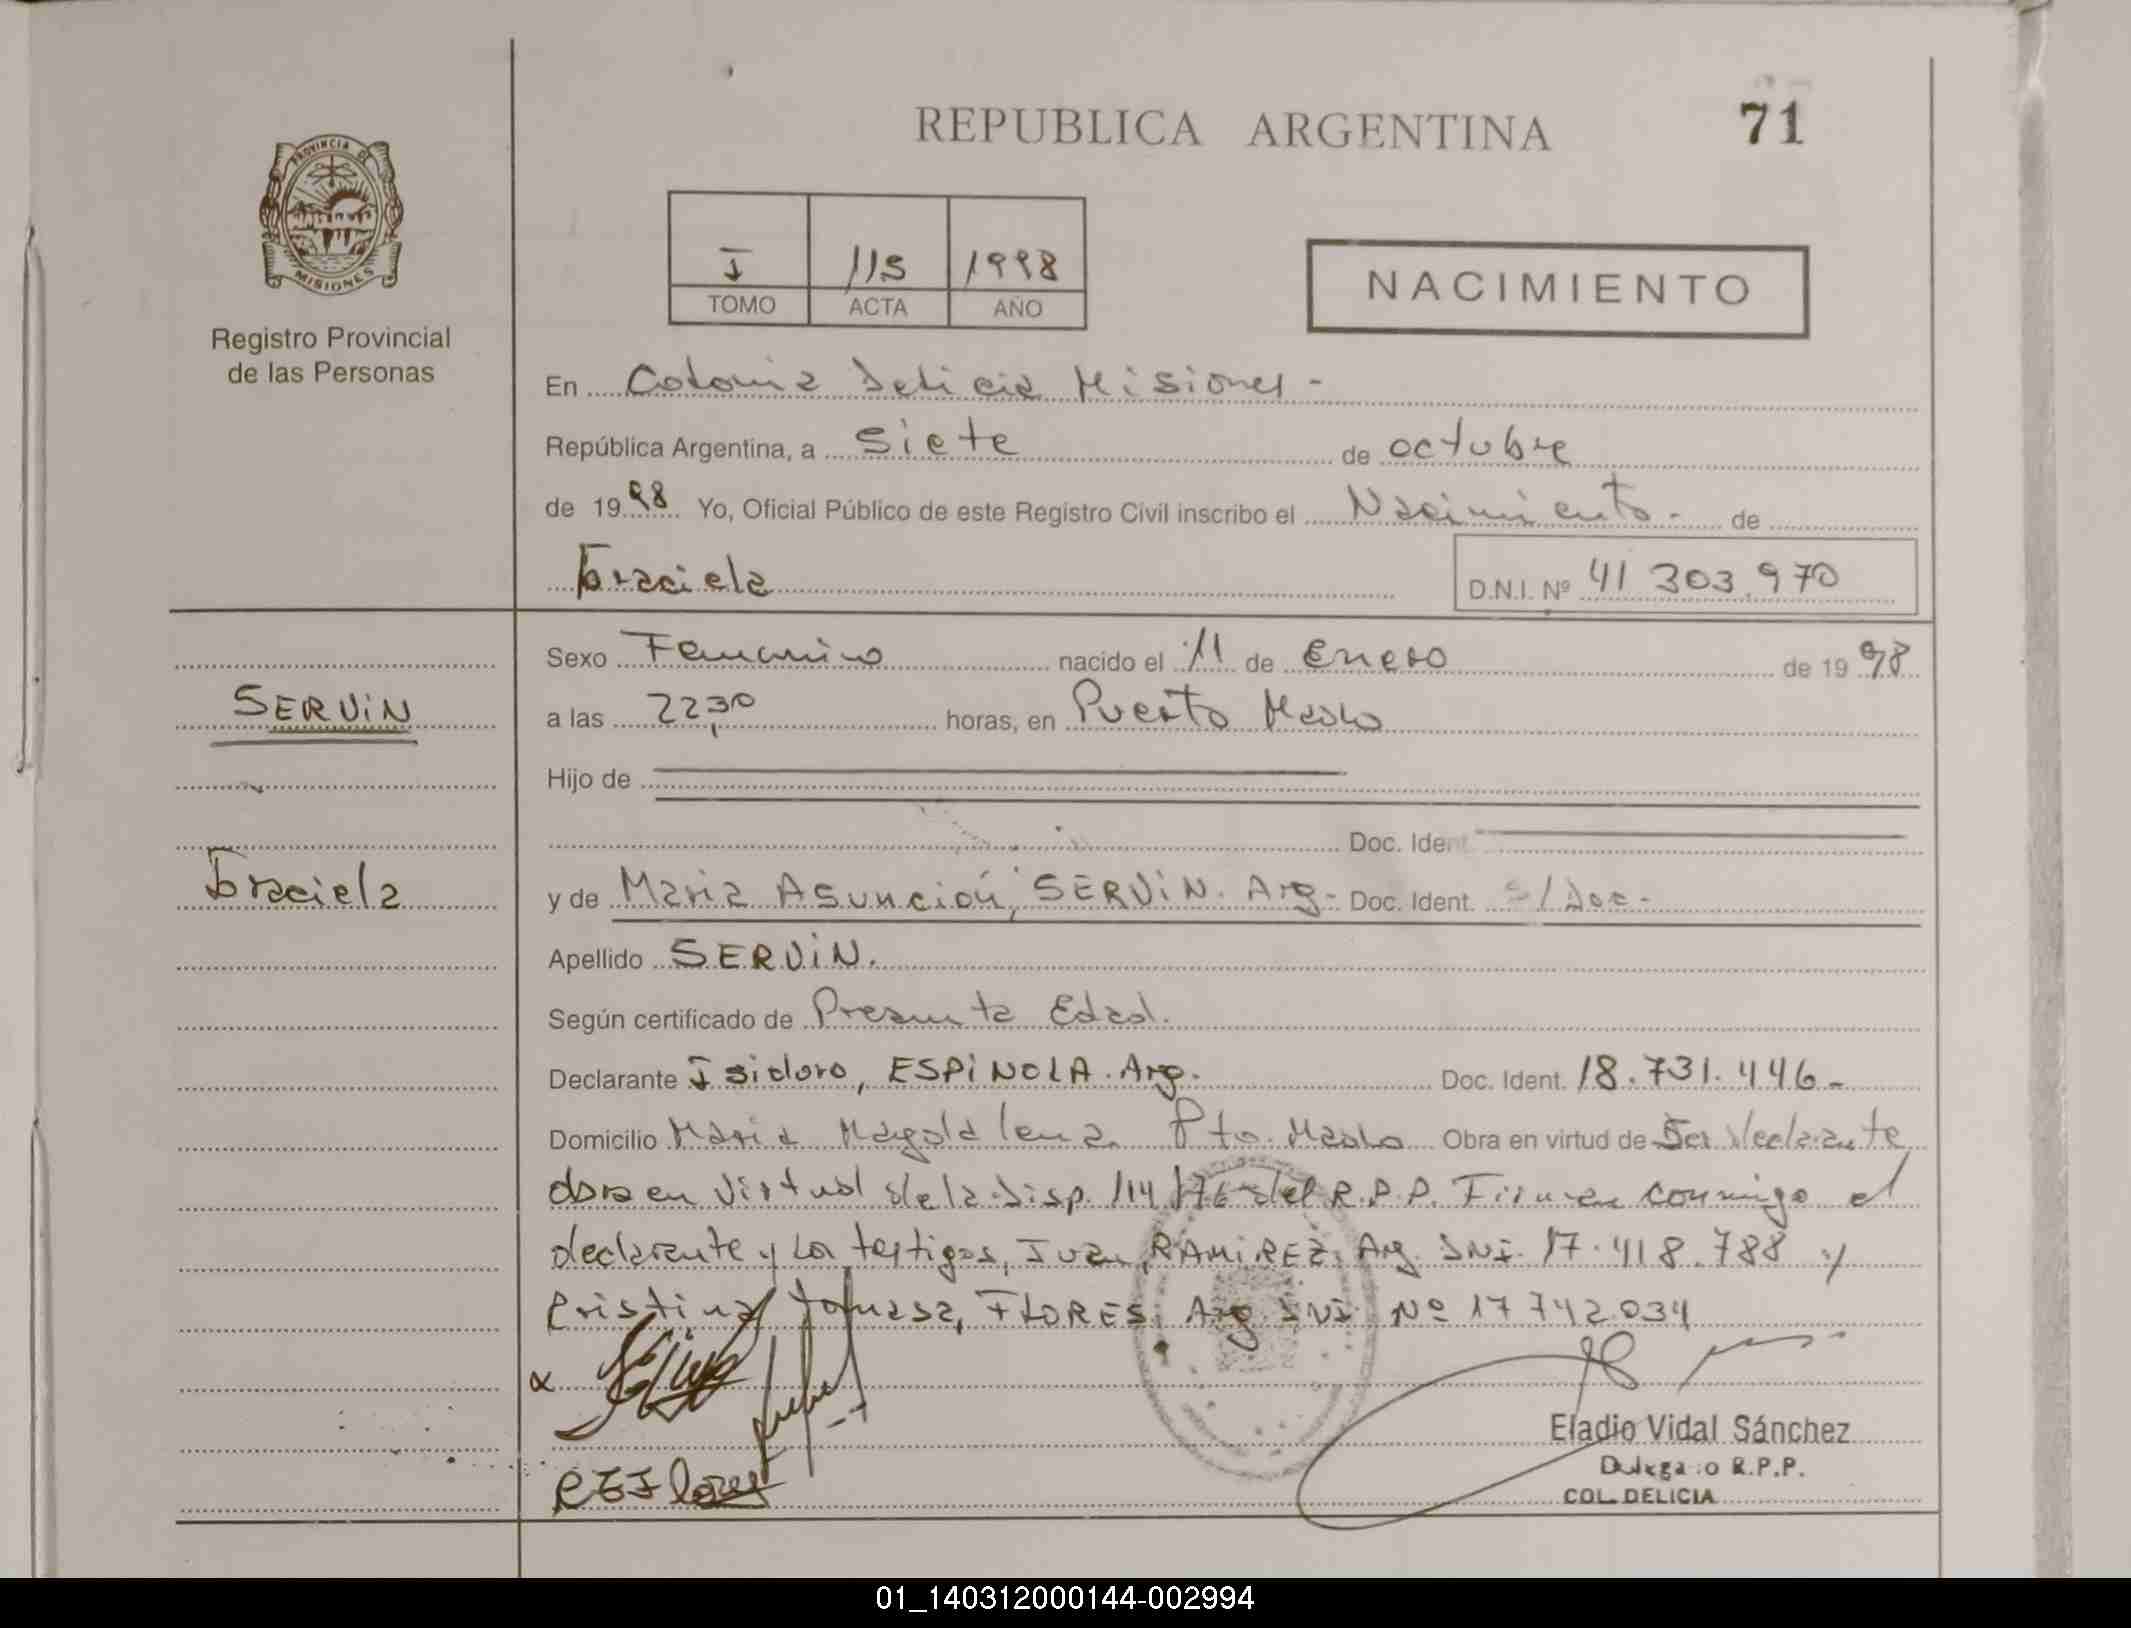 REPUBLICA ARGENTINA
71
PROVINCIA DE
MISIONES
Registro Provincial
de las Personas
I 115 1998
TOMO ACTA AÑO
NACIMIENTO
En Colonia Delicia Misiones -
República Argentina, a siete de octubre
de 1998 Yo, Oficial Público de este Registro Civil inscribo el Nacimiento - de
Graciela D.N.I. Nº 41 303.970
Sexo Femenino nacido el 11 de Enero de 1998
SERViN
a las 22,30 horas, en Puerto Mado
Hijo de
Doc. Ident.
Graciela
y de Maria Asunción, SERViN. Arg- Doc. Ident. s/Doc-
Apellido SERViN.
Según certificado de Presunta Edad.
Declarante Isidoro, ESPiNOLA. Arg. Doc. Ident. 18.731.446-
Domicilio Maria Magdalena Pto. Mado Obra en virtud de Ser declarante
obra en virtud de la Disp. 114/76 del R.P.P. Firman conmigo el
declarante y los testigos, Juan, RAMiREZ, Arg. DNI. 17.418.788 y
Cristina Tomasa, FLORES, Arg. DNI Nº 17 742.034
Eladio Vidal Sánchez
Delegado R.P.P.
COL. DELICIA
01_140312000144-002994